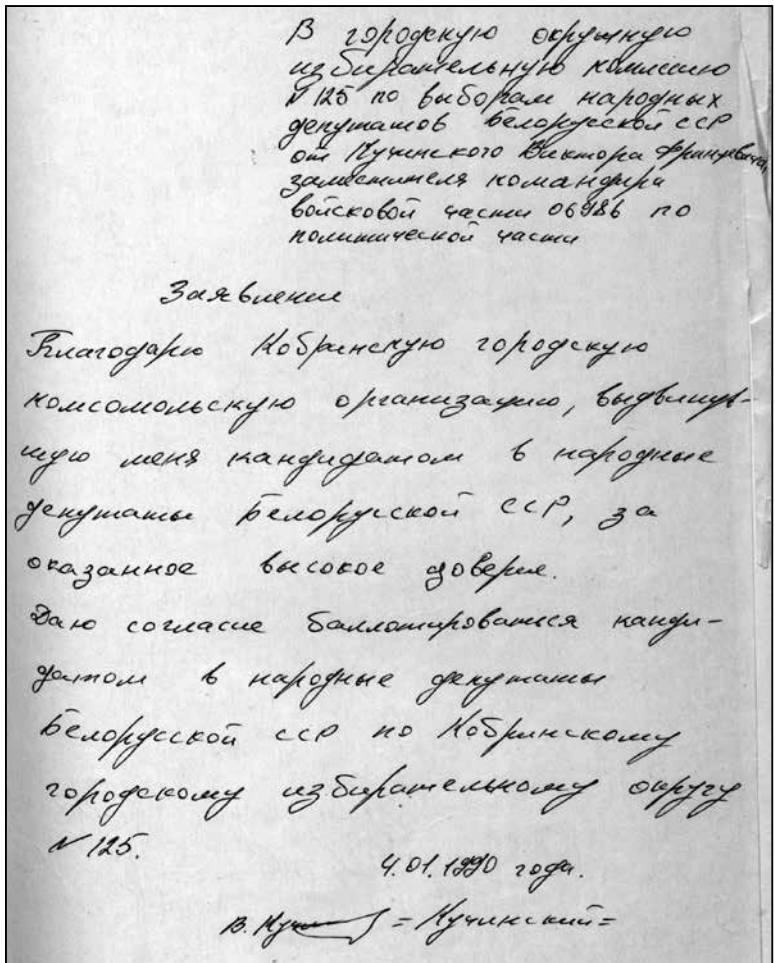 В городскую окружную
избирательную комиссию
N 125 по выборам народных
депутатов Белорусской ССР
от Кучинского Виктора Францевича,
заместителя командира
войсковой части 06986 по
политической части
Заявление
Благодарю Кобринскую городскую
комсомольскую организацию, выдвинув-
шую меня кандидатом в народные
депутаты Белорусской ССР, за
оказанное высокое доверие.
Даю согласие баллотироваться канди-
датом в народные депутаты
Белорусской ССР по Кобринскому
городскому избирательному округу
N 125.
4.01.1990 года.
В. Кучи =Кучинский=